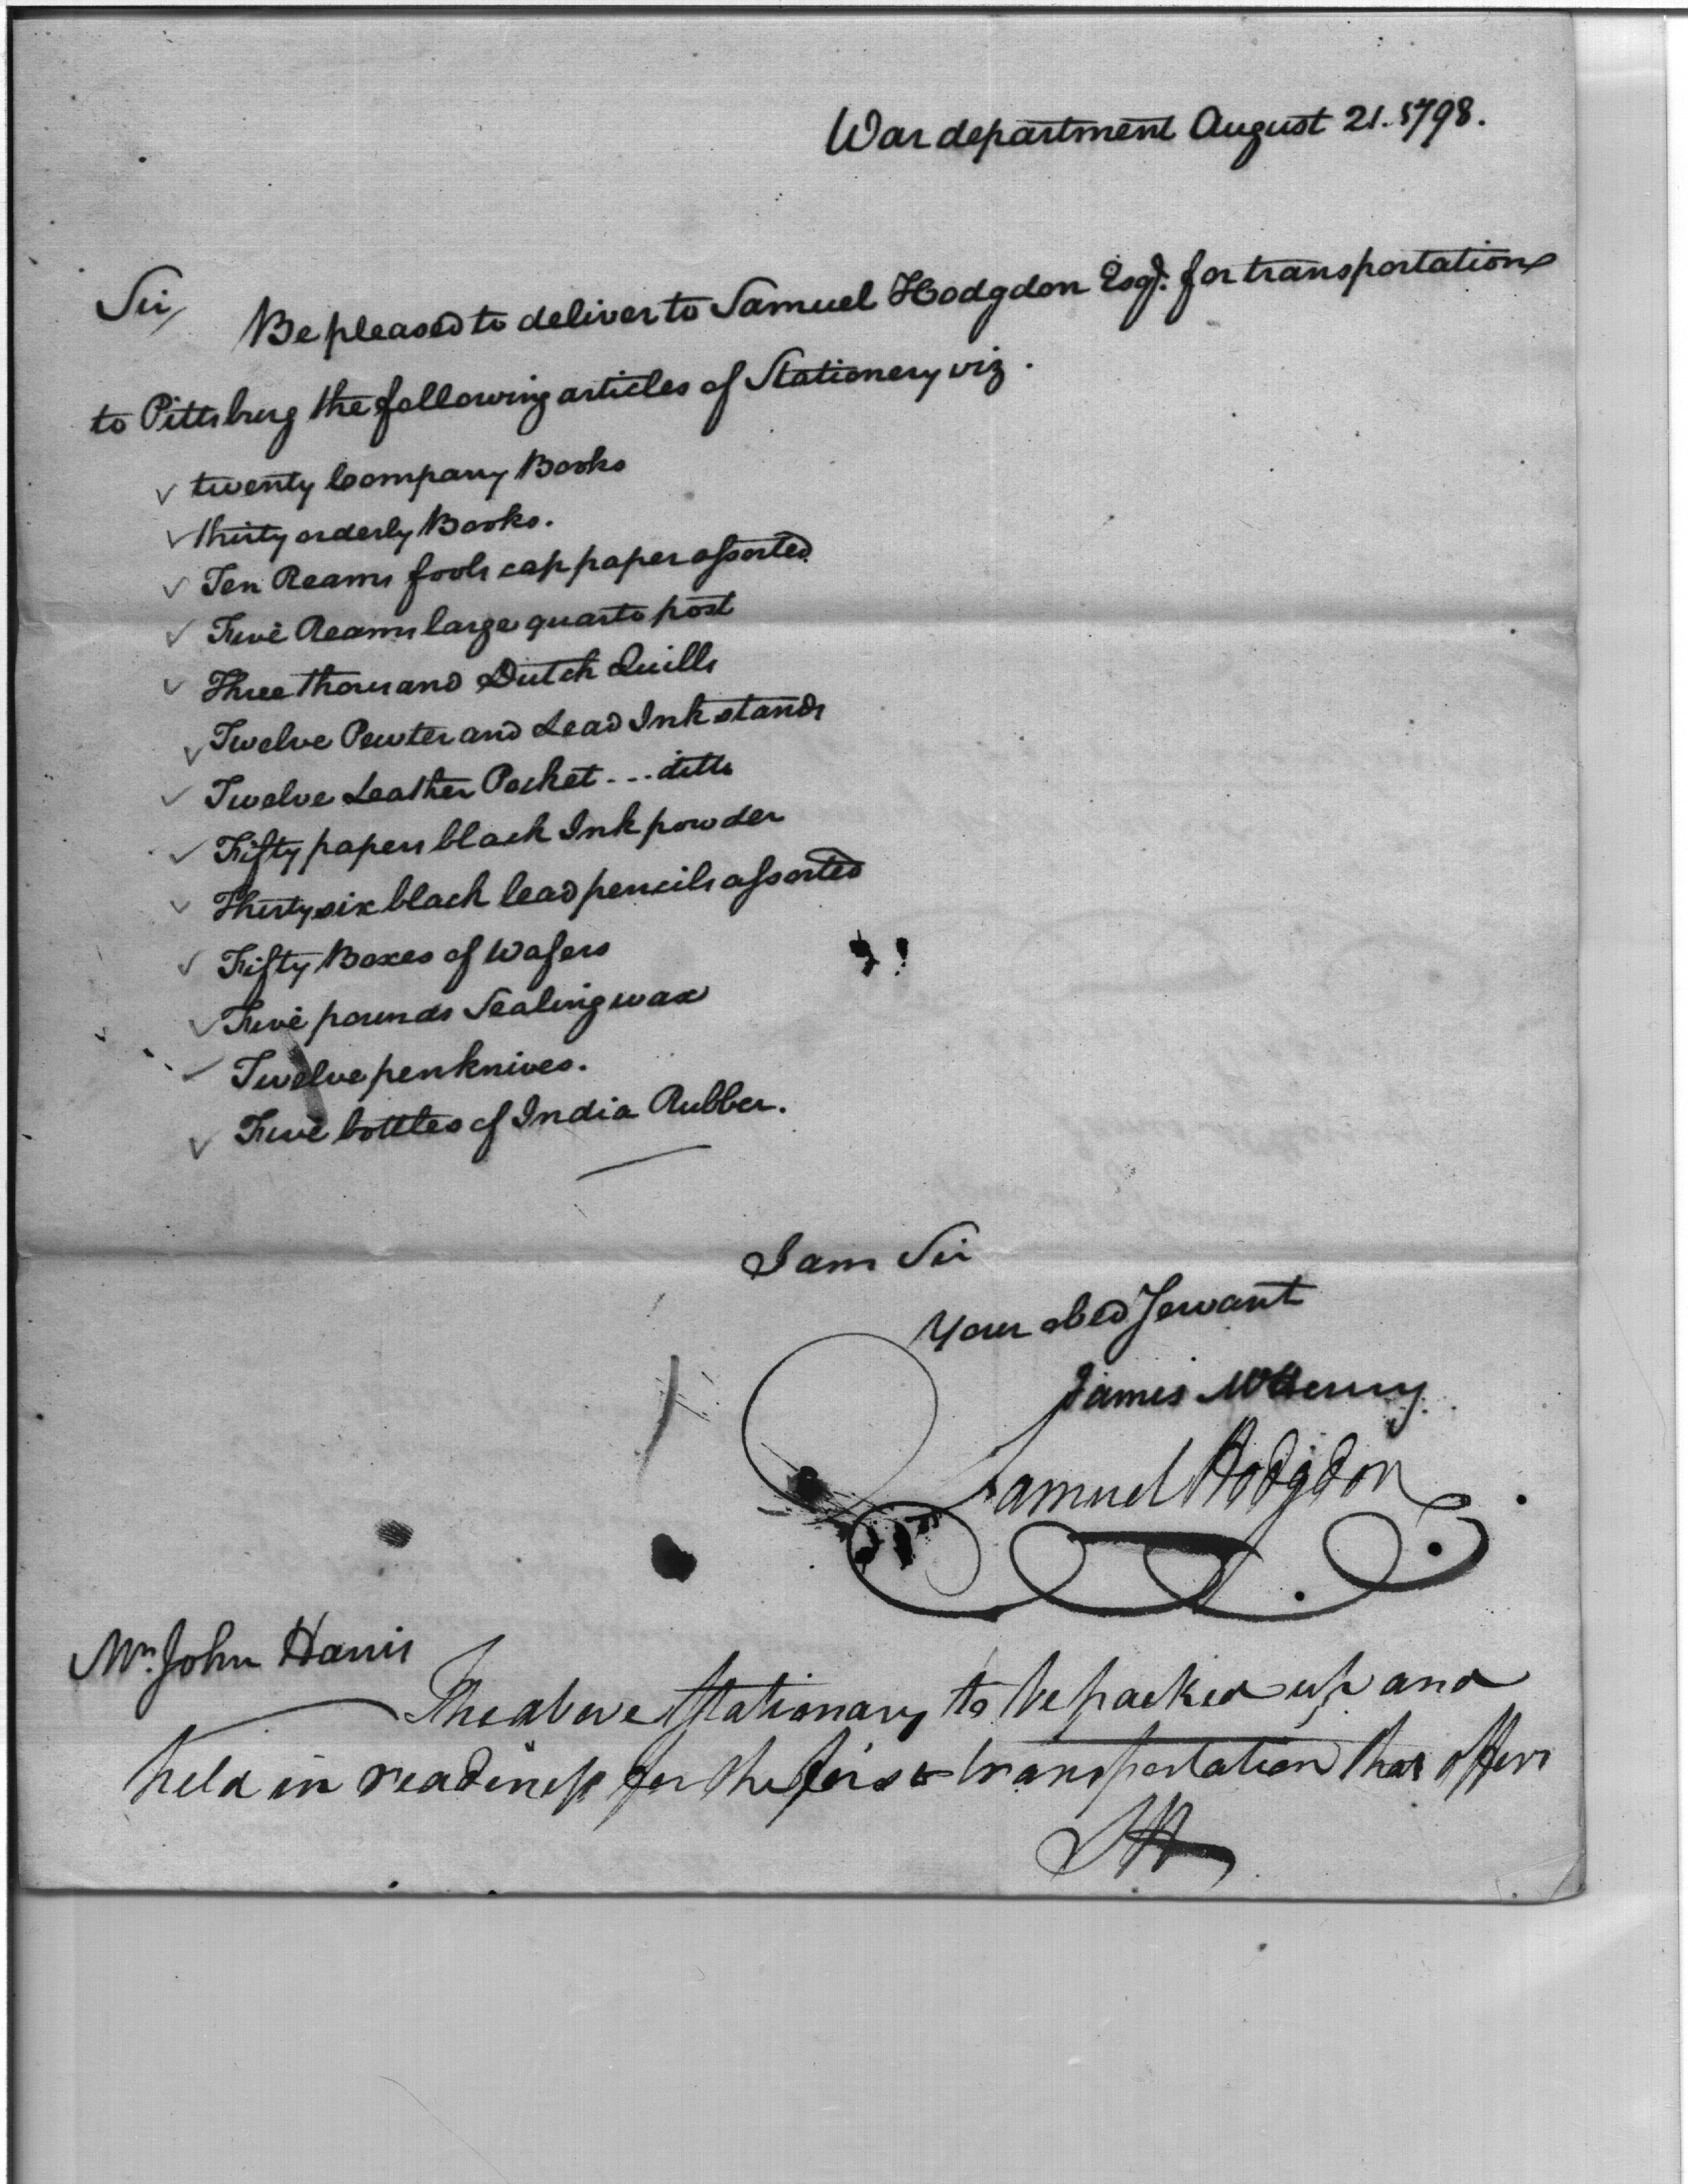 War department August 21. 1798.
Sir,
Be pleased to deliver to Samuel Hodgdon Esqr. for transportation
to Pittsburg the following articles of Stationery viz.
✓ twenty Company Books
✓ thirty orderly Books.
✓ Ten Reams fools cap paper assorted
✓ Five Reams large quarto post
✓ Three thousand Dutch Quills
✓ Twelve Pewter and Lead Ink stands
✓ Twelve Leather Pocket --- ditto
✓ Fifty papers black Ink powder
✓ Thirty six black lead pencils assorted
✓ Fifty Boxes of Wafers
✓ Five pounds Sealing wax
✓ Twelve penknives.
✓ Five bottles of India Rubber.
I am Sir
Your obed Servant
James McHenry
Samuel Hodgdon
Mr. John Harris
The above Stationary to be packed up and
held in readiness for the first transportation that offers
SH